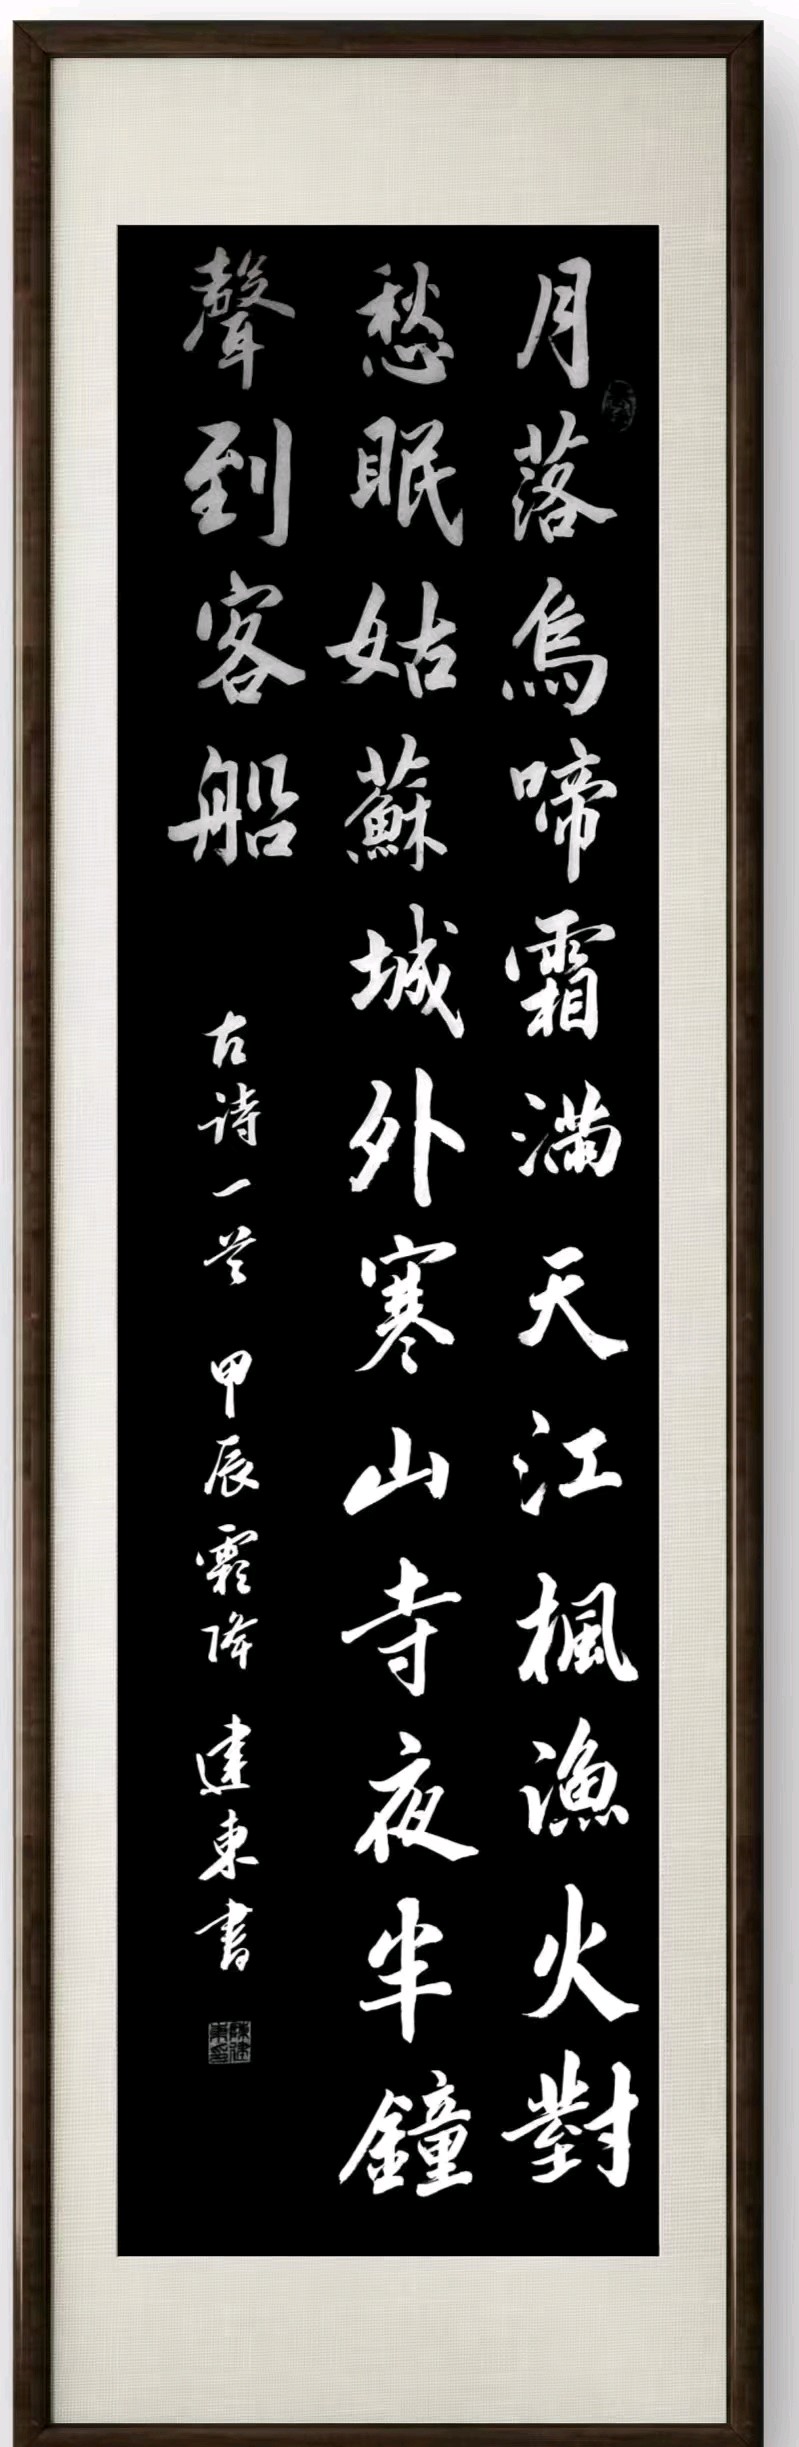 月落烏啼霜滿天江楓漁火對
愁眠姑蘇城外寒山寺夜半鐘
聲到客船
古诗一首 甲辰霜降 建東書